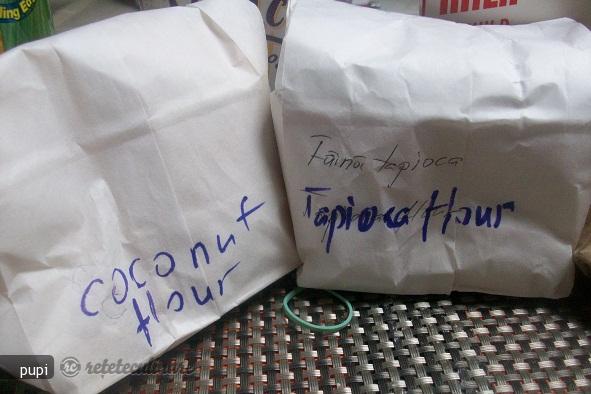 coconut
flour
Făină tapioca
Tapioca flour
pupi
rețeteculinare